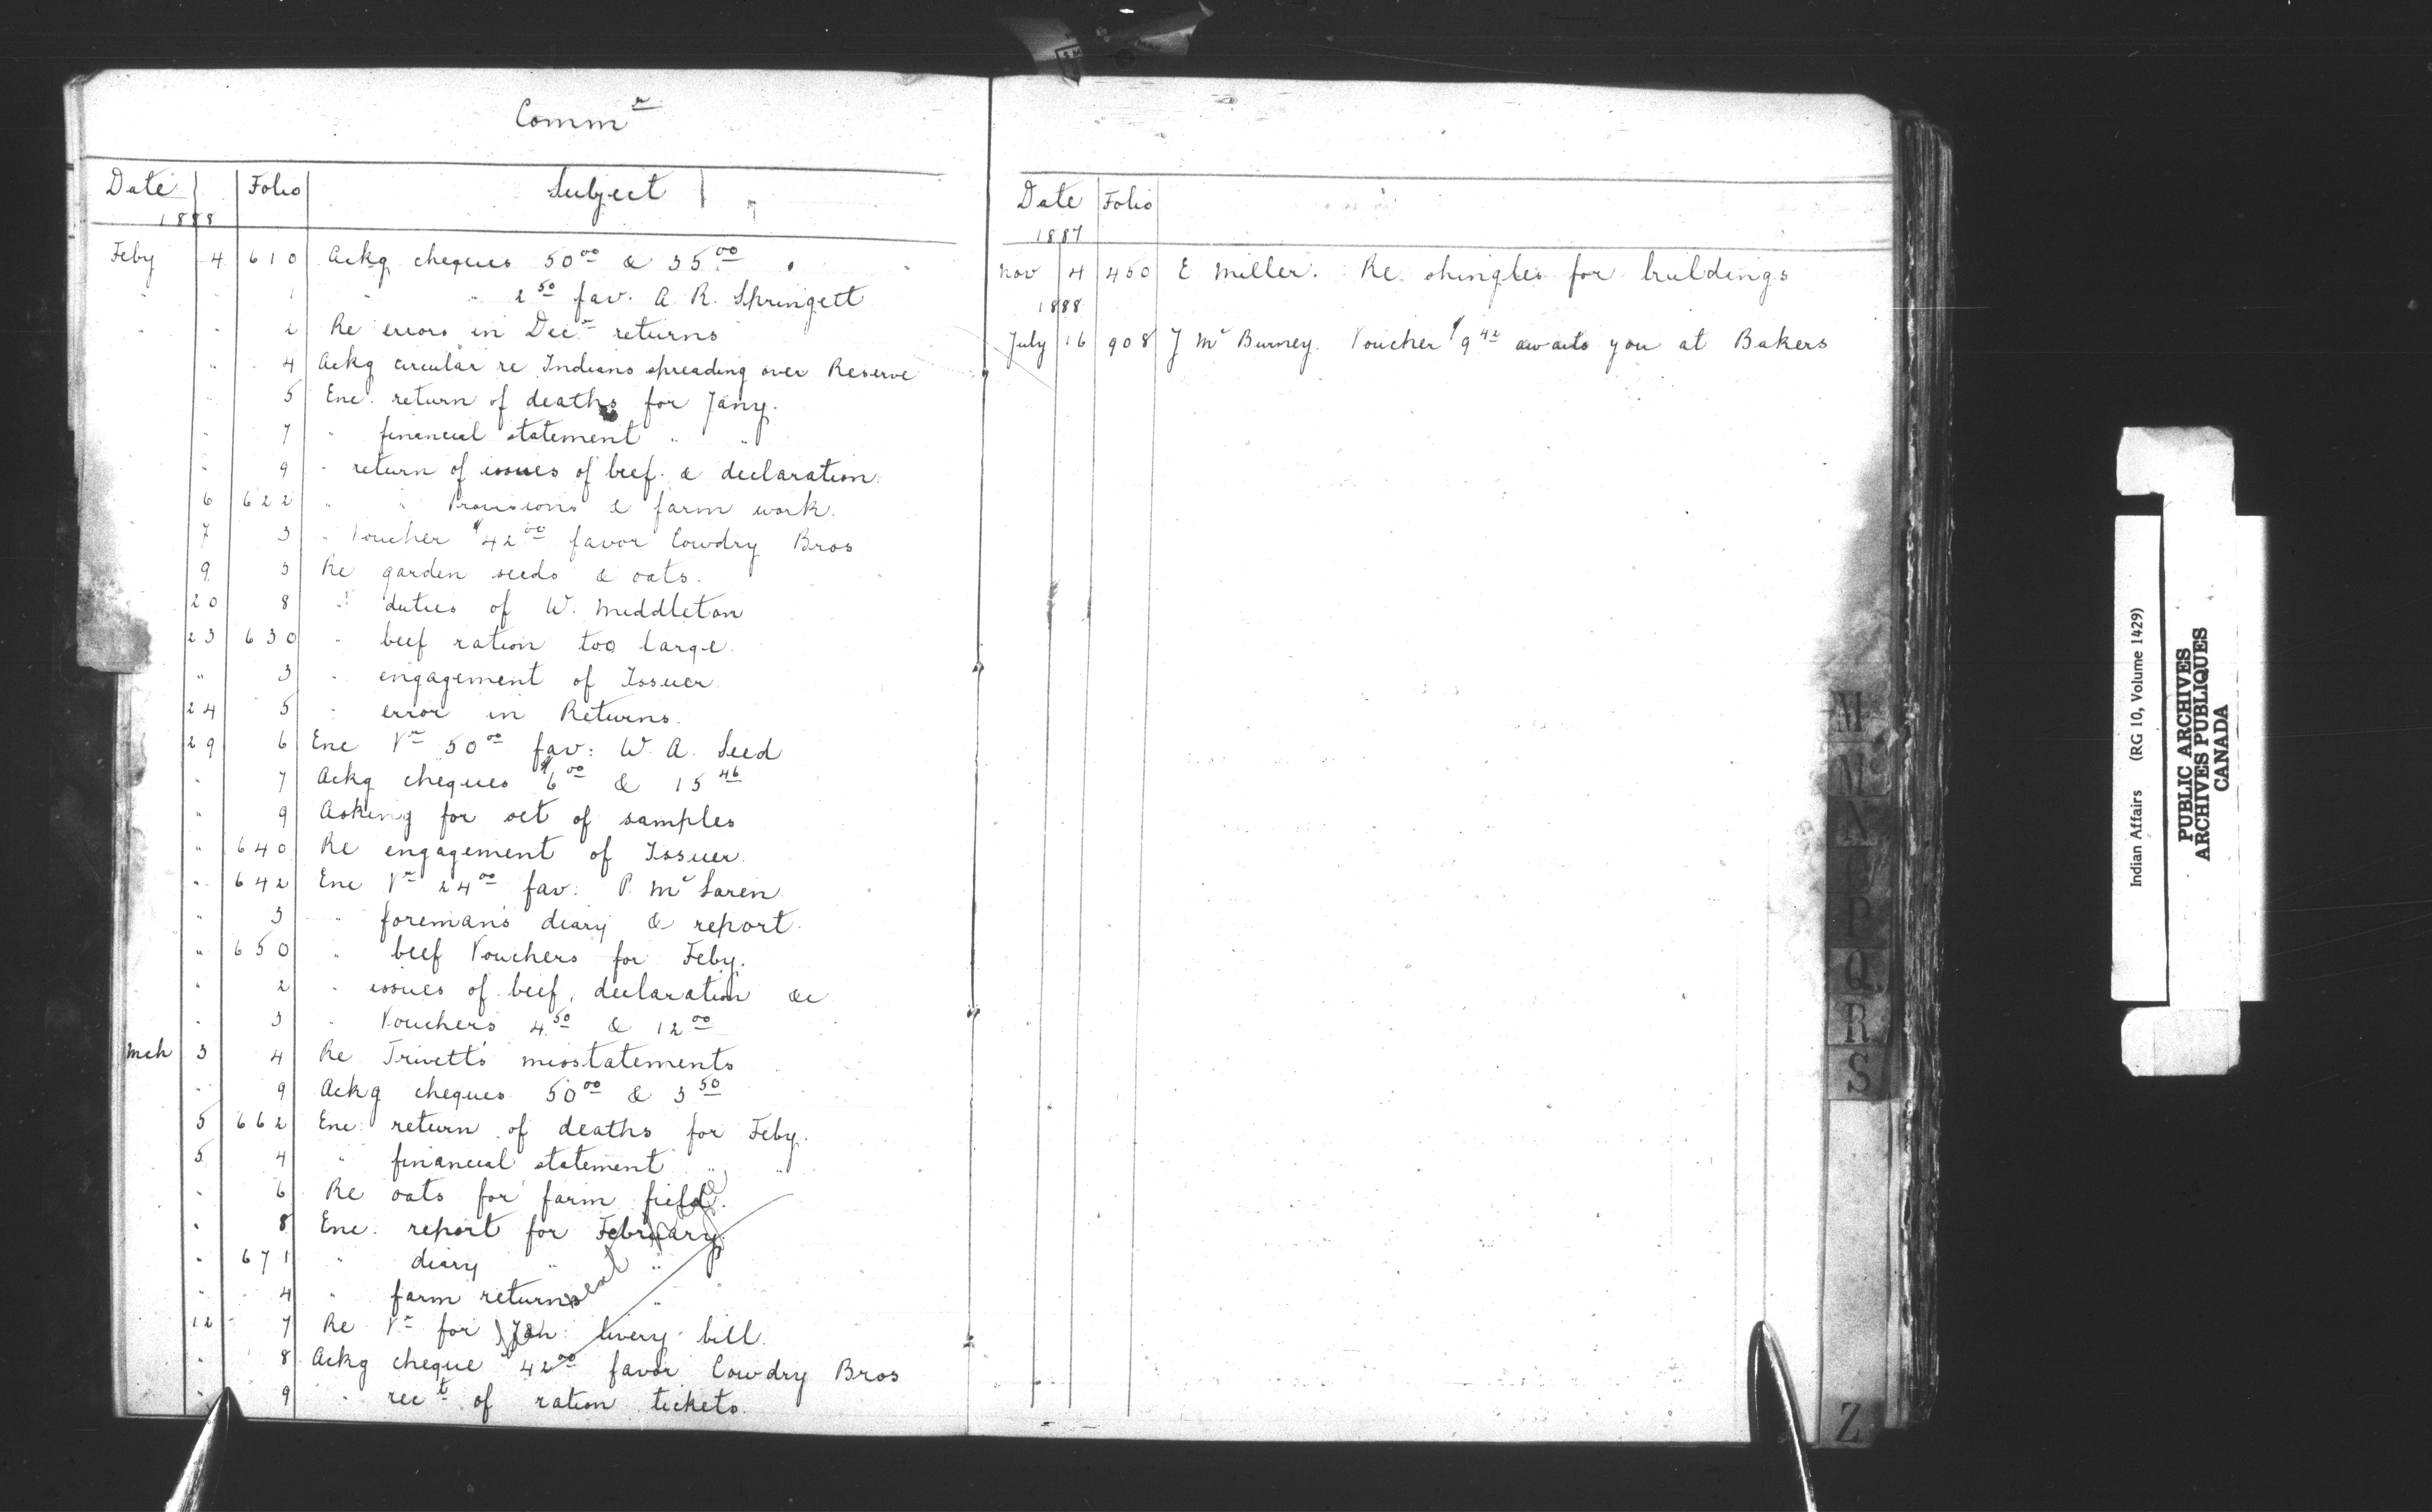 Comm^r
Date Folio Subject
1888
Feby 4 610 Ackg cheques 50^00 & 35^00
" " 1 " " 2^50 fav. A. R. Springett
" " 2 Re errors in Dec^r returns
" 4 Ackg circular re Indians spreading over Reserve
" 5 Enc. return of deaths for Jany.
" 7 " financial statement " "
" 9 " return of issues of beef & declaration.
6 622 " " Provisions & farm work.
7 3 " Voucher $42^00 favor Cowdry Bros
9 5 Re garden seeds & oats.
20 8 " duties of W. Middleton
23 630 " beef ration too large.
" 3 " engagement of Issuer.
24 5 " error in Returns.
29 6 Enc V^r 50^00 fav: W. A. Seed
" 7 Ackg cheques $6^00 & 15^46
" 9 Asking for set of samples
" 640 Re engagement of Issuer.
" 642 Enc V^r 24^00 fav: P. M^cLaren
" 3 " foreman's diary & report.
" 650 " beef Vouchers for Feby.
" 2 " issues of beef, declaration &c
" 3 " Vouchers 4^50 & 12^00
Mch 3 4 Re Trivett's misstatements
" 9 Ackg cheques 50^00 & 3^50
5 662 Enc. return of deaths for Feby.
5 4 " financial statement " "
" 6 Re oats for farm field.
" 8 Enc. report for February.
" 671 " diary " "
" 4 " farm returns "
12 7 Re V^r for Jan: livery bill.
" 8 Ackg cheque 42^00 favor Cowdry Bros
" 9 " rec^t of ration tickets.
Date Folio
1887
Nov 4 450 E Miller. Re shingles for buildings
1888
July 16 908 J M^cBurney. Voucher $9^42 awaits you at Bakers
M
Mc
N
O
P
Q
R
S
Z
Indian Affairs (RG 10, Volume 1429)
PUBLIC ARCHIVES
ARCHIVES PUBLIQUES
CANADA